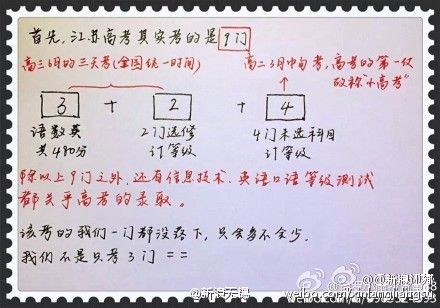 首先,江苏高考其实考的是9门
高三6月的三天考(全国统一时间)
高二3月中旬考,高考的第一仗
故称"小高考"
3 + 2 + 4
语数英 2门选修 4门未选科目
共480分 计等级 计等级
除以上9门之外,还有信息技术、英语口语等级测试
都关乎高考的录取。
该考的我们一门都没落下,只会多不会少。
我们不是只考3门 ==
@新浪天理